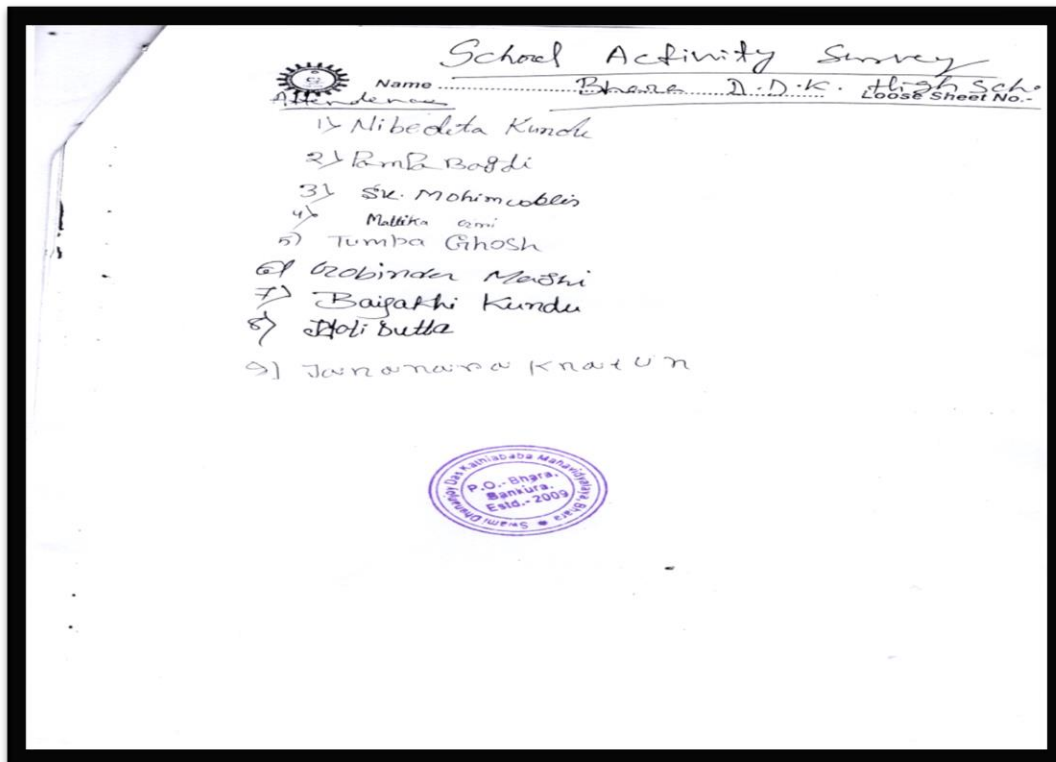 School Activity Survey
Name .................... Bhara D.D.K. High Sch.
Loose Sheet No.-
Attendence
1) Nibedita Kundu
2) Pampa Bagdi
3) SK.
4) Mallika
5) Tumba Ghosh
6) Gobinda Maghi
7) Baisakhi Kundu
8) Holi Dutta
9) Jahanara Khatun
Swami Dhananjay Das Kathiababa Mahavidyalaya, Bhara
P.O.- Bhara,
Bankura.
Estd.- 2009